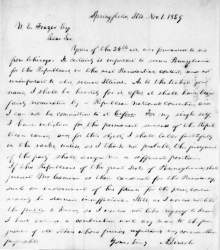 Springfield, Ills. Nov. 1. 1859
W. E. Frazer, Esq
Dear Sir:
Yours of the 24th ult. was forwarded to me
from Chicago. It certainly is important to secure Pennsylvania
for the Republicans, in the next Presidential contest; and not
unimportant to, also, secure Illinois. As to the ticket you
name, I shall be heartily for it, after it shall have been
fairly nominated by a Republican national convention; and
I can not be committed to it before. For my single self,
I have enlisted for the permanent success of the Repub-
lican cause; and, for this object, I shall labor faithfully
in the ranks, unless, as I think not probable, the judgment
of the party shall assign me a different position.
If the Republicans of the great State of Pennsylvania, shall
present Mr. Cameron as their candidate for the Presidency,
such an indorsement of his fitness for the place, could
scarcely be deemed insufficient. Still, as I would not like
the public to know, so I would not like myself to know
I had entered a combination with any man, to the pre-
judice of all others whose friends respectively may consider them
preferable.
Yours truly A. Lincoln